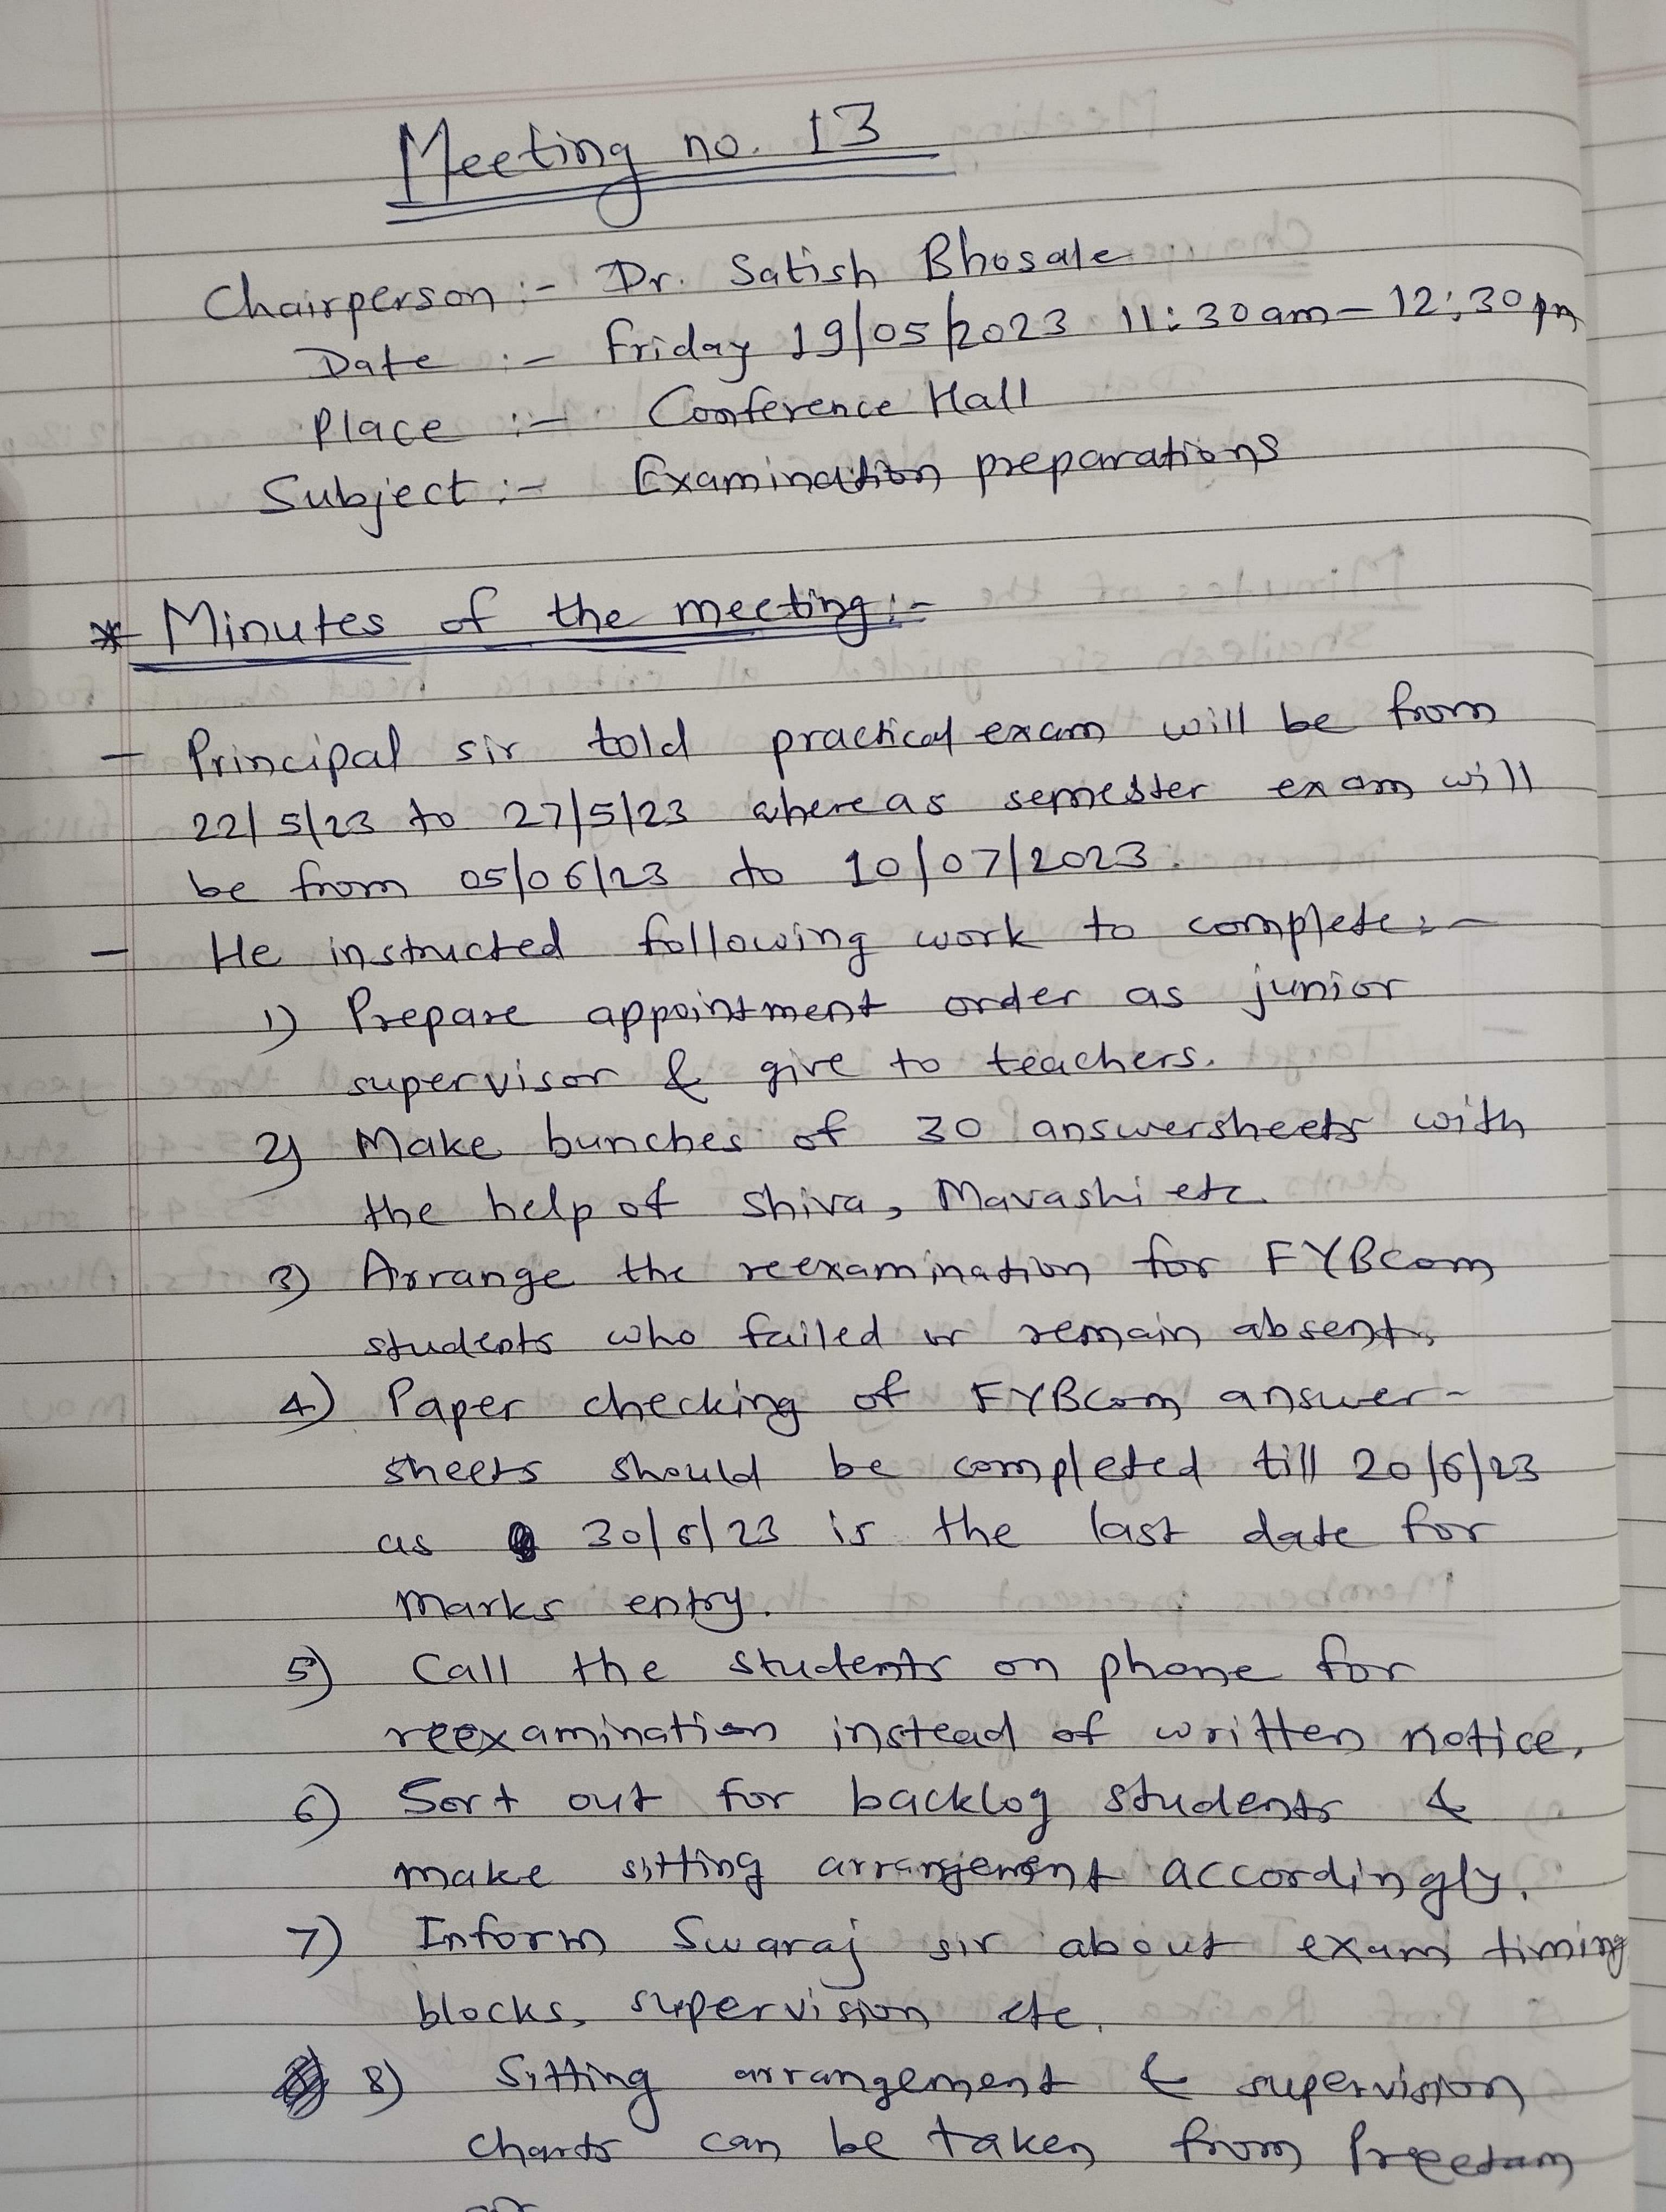 Meeting no. 13
Chairperson :- Dr. Satish Bhosale
Date :- Friday 19/05/2023 11:30am - 12:30pm
Place :- Conference Hall
Subject :- Examination preparations
* Minutes of the meeting :-
- Principal sir told practical exam will be from
22/5/23 to 27/5/23 whereas semester exam will
be from 05/06/23 to 10/07/2023.
- He instructed following work to complete :-
1) Prepare appointment order as junior
supervisor & give to teachers.
2) Make bunches of 30 answersheets with
the help of Shiva, Mavashi etc.
3) Arrange the reexamination for FYBCom
students who failed or remain absent.
4) Paper checking of FYBCom answer-
sheets should be completed till 20/6/23
as 30/6/23 is the last date for
marks entry.
5) Call the students on phone for
reexamination instead of written notice.
6) Sort out for backlog students &
make sitting arrangement accordingly.
7) Inform Swaraj sir about exam timing
blocks, supervision etc.
8) Sitting arrangement & supervision
charts can be taken from Preetam